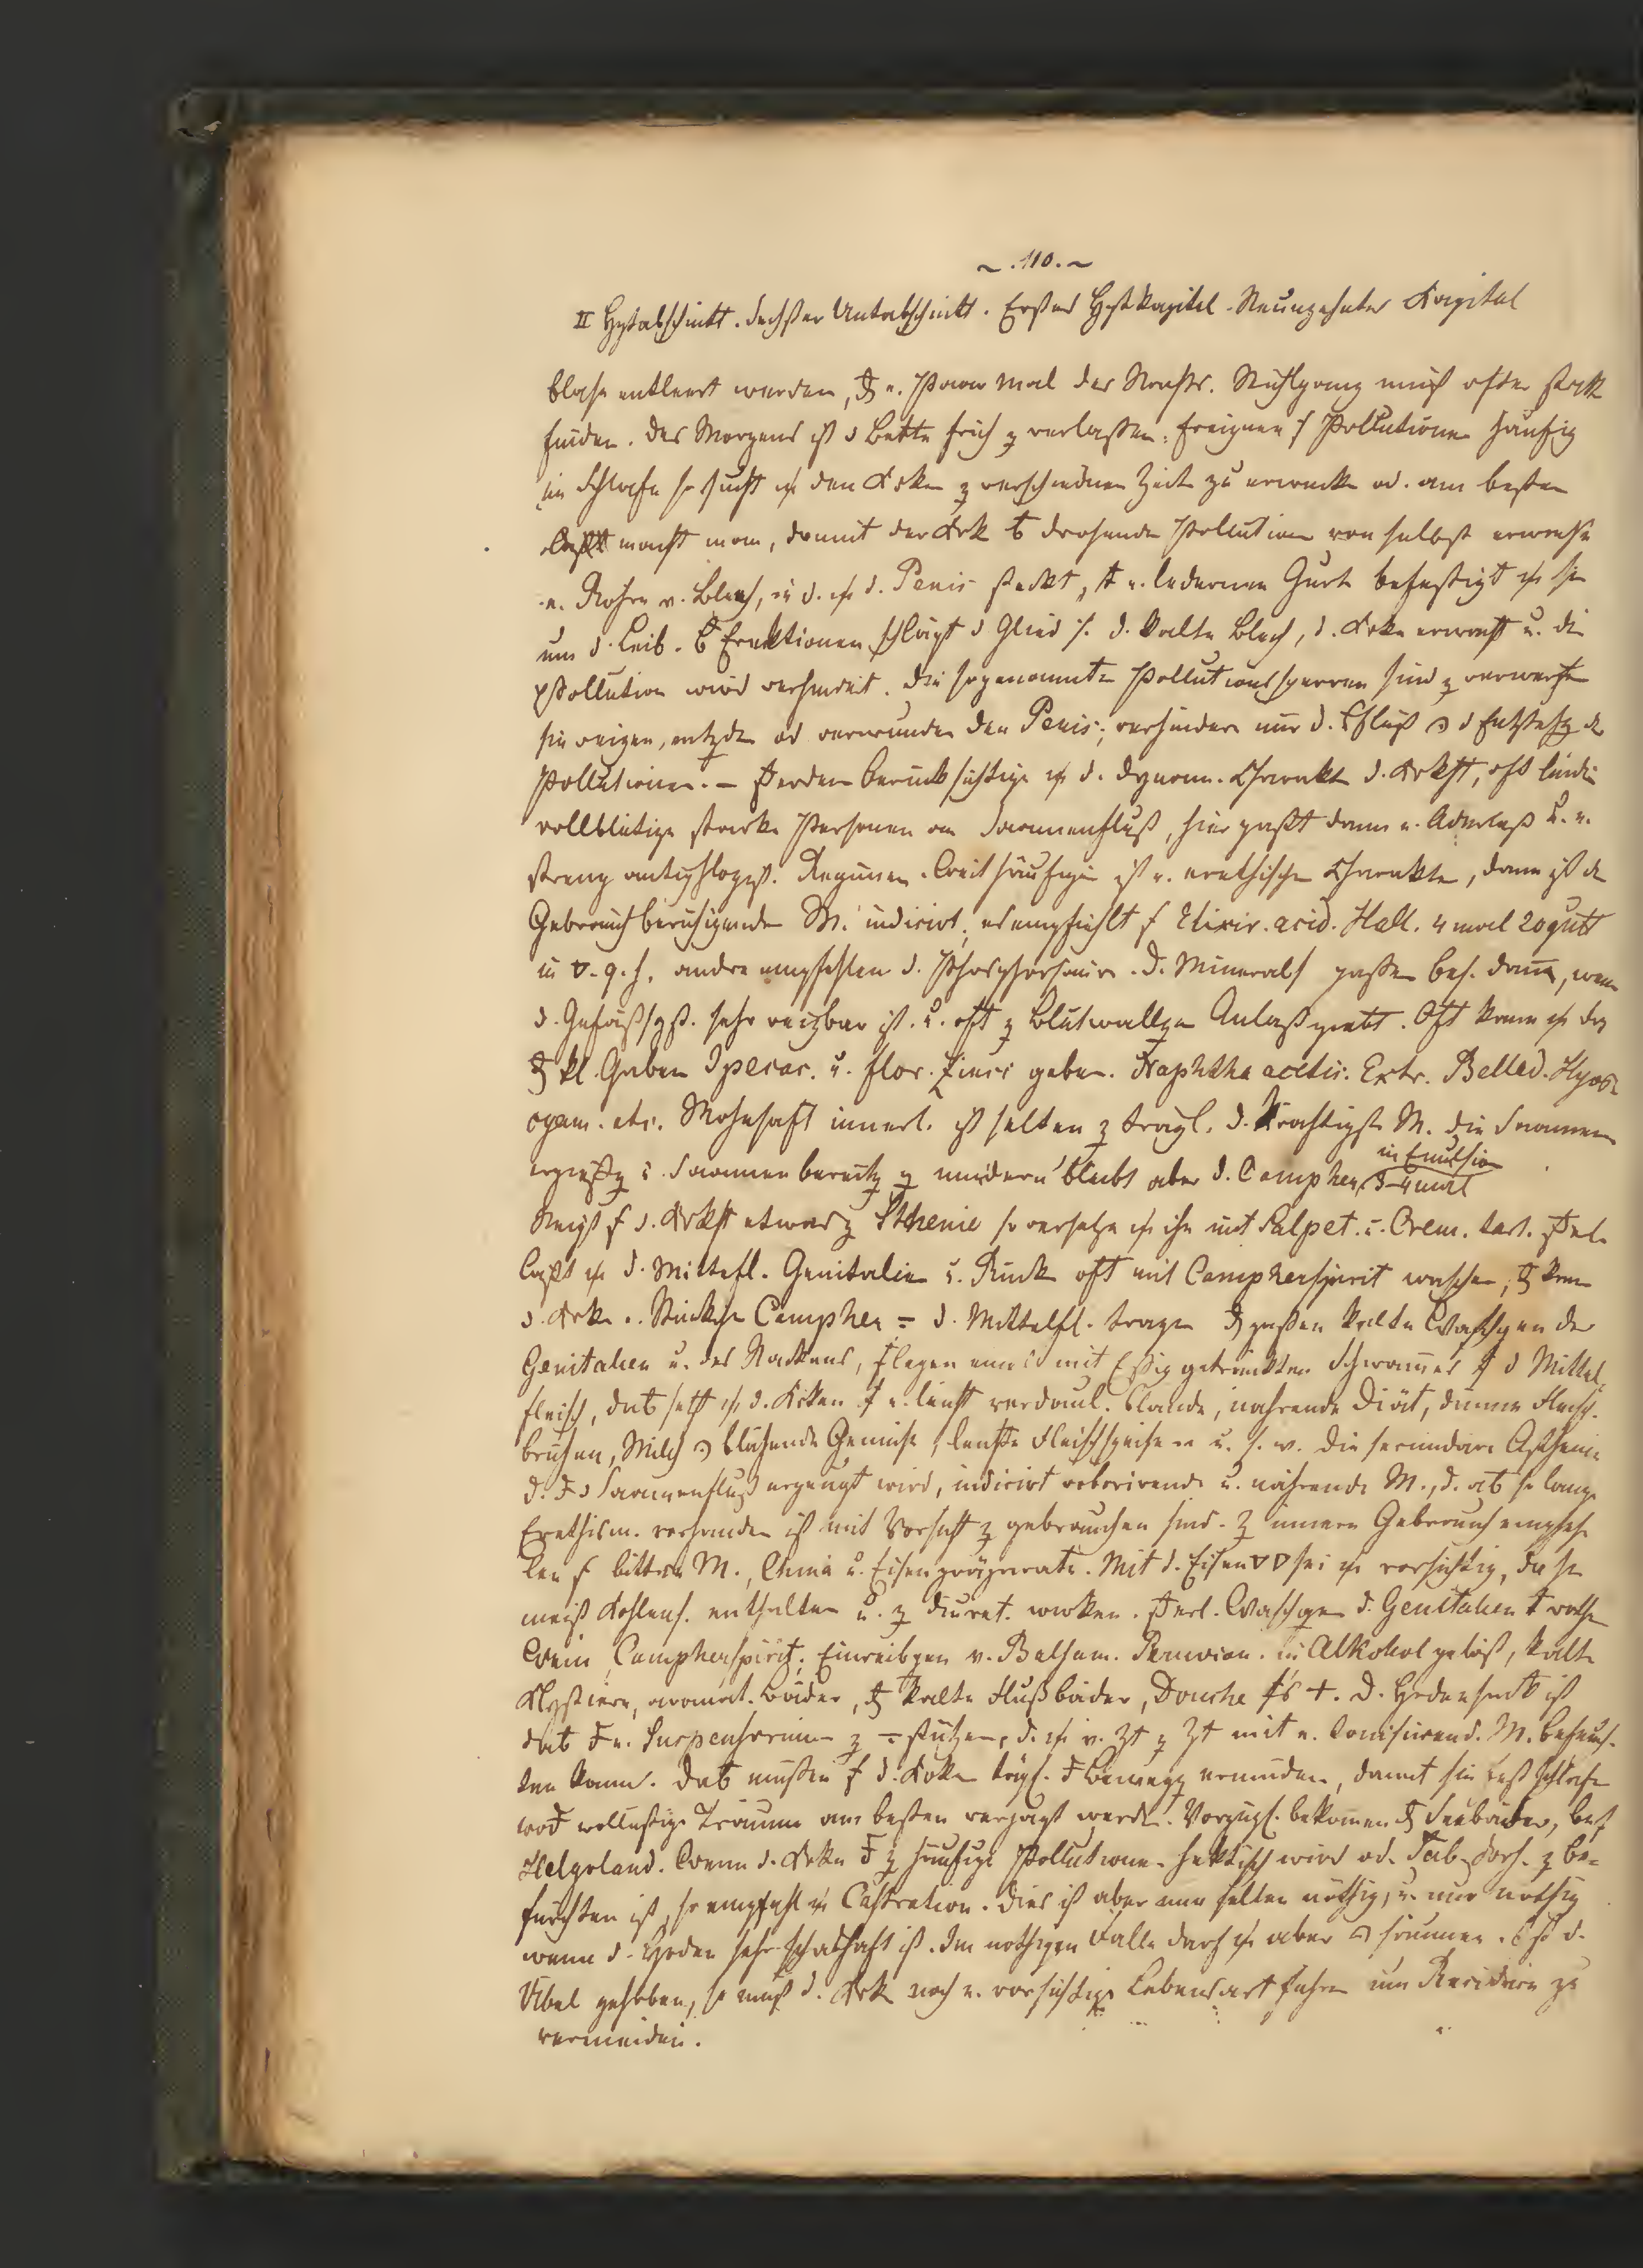 ~ . 110. ~
II Hptabschnitt. Sechster Unterabschnitt. Erstes Hptkapitel. Neunzehntes Kapitel
blase entleert werden, u. Paar mal des Nachts. Stuhlgang muß öfter statt
finden. Des Morgens ist d Bette früh z verlassen. Ereignen s Pollutionen häufig
im Schlafe so sucht den Krken z verschiednen Zeiten zu erwecken od. am besten
macht man, damit der Krke drohende Pollution von selbst erwache
e. Röhre v. Blech, in d. d. Penis steckt, e. ledernen Gurt befestigt sie
um d. Leib. Erektionen schlägt d Glied d. kalte Blech, d. Krke erwacht u. die
Pollution wird verhindert. Die sogenannte Pollutionssperren sind z verwerfen
sie reizen, od verwunden den Penis, verhindern nur d. d Entstehg der
Pollutionen. – berücksichtige d. dynam. Charakter d. Krkht, oft leiden
vollblütige starke Personen an Saamenfluß, hier paßt dann e. Aderlaß u. e.
streng antiphlogist. Regimen. Weit häufiger ist e. erethischer Charakter, dann ist der
Gebrauch beruhigender M. indicirt, es empfiehlt s Elixir. acid. Hall. 4 mal 20 gutt
in andre empfehlen d. Phosphorsäure. D. Minerals passen bes. dann, wenn
d. Gefäßsyst. sehr reizbar ist. u. oft z Blutwallgen Anlaß giebt. Oft kann
kl. Gaben Ipecac. u. flor. Zinci geben. Naphtha acetic. Extr. Bellad. Hyos
cyam. etc. Mohnsaft innerl. ist selten z trägl. d. kräftigste M. die Saamen
u. Saamenbereitg z mindern bleibt aber d. Campher in Emulsion 3–4 mal
Neigt s d. Krkht etwas z Sthenie so versetze ihn mit Salpet. u. Crem. tart.
laßt d. Mittelfl. Genitalien u. Rücken oft mit Campherspirit waschen, kann
d. Krke e. Stückchen Campher d. Mittelfl. tragen passen kalte Waschgen der
Genitalien u. des Nackens, legen eines mit Essig getränkten Schwammes d Mittel
fleisch, setzt d. Krken e. leicht verdaul. blande, nährende Diät, dünne Fleisch
brühen, Milch blähende Gemüse, leichte Fleischspeisen u. s. w. Die secundäre Asthenie
d. d Saamenfluß erzeugt wird, indicirt roborirende u. nährende M., d. so lange
Erethism. vorhanden ist mit Vorsicht z gebrauchen sind. Z innern Gebrauch empfeh
len s bittere M., China u. Eisenpräparate. Mit d. Eisen sei vorsichtig, da sie
meist Kohlens. enthalten u. z diuret. wirken. Waschgen d. Genitalien rothen
Wein, Campherspirit, Einreibgen v. Balsam. Peruvian. in Alkohol gelöst, kalte
Klystiere, aromat. Bäder, kalte Flußbäder, Douche D. Hodensack ist
e. Suspensorium z stützen, d. v. Zt z Zt mit e. M. befeuch
ten kann. müssen s d. Krken tägl. Bewegg ermüden, damit sie fest schlafen
wollüstige Träume am besten verjagt werden. Vorzügl. bekommen Seebäder, bes
Helgoland. Wenn d. Krke z häufige Pollutionen hektisch wird od. Tab. dors. z be-
fürchten ist, so empfahl Castration. Dies ist aber nur selten nöthig, u. nur nöthig
wenn d. Hoden sehr schadhaft ist. Im nöthigen Falle darf aber säumen. Ist d.
Übel gehoben, so muß d. Krke noch e. vorsichtige Lebensart führen um Recidive zu
vermeiden.